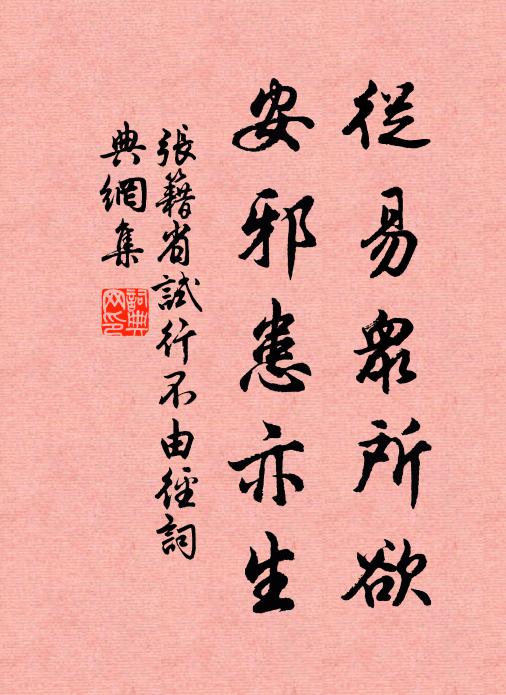 從易衆所欲
安邪患亦生
張籍省試行不由徑詞
典網集
詞典
网印